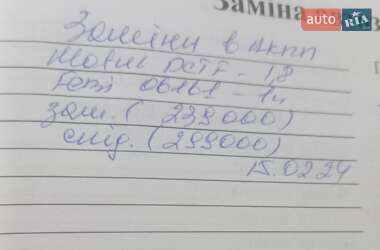 Заміна
auto RIA
Заміни в АКПП
Мотил DCTF - 1,8
06161 - 1л
зам. (239000)
слід. (299000)
15.02.24